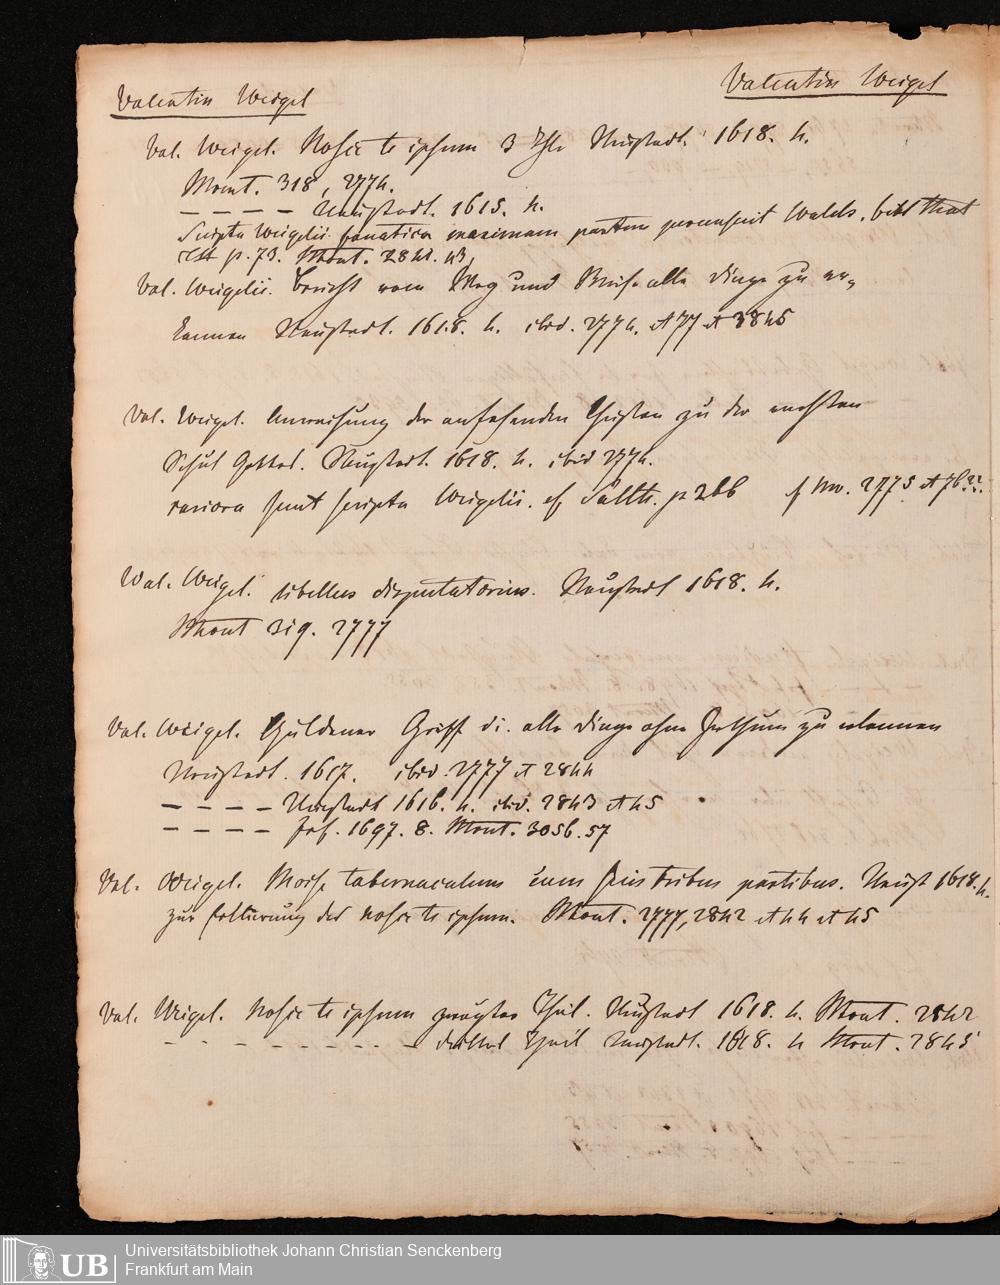 Valentin Weigel
Valentin Weigel
Val. Weigel. Nosce te ipsum 3 Thle Neustadt. 1618. 4.
Mont. 318, 2774.
– – – – Neustadt. 1615. 4.
Scripta Weigelii fanatica maximam partem recenset Walch. bibl theol
p. 73. Mont. 2841. 43,
Val. Weigelii. Bericht vom Weg und Weise alle Dinge zu er„
kennen Neustadt. 1618. 4. ibid. 2774. et 77 et 3845
Val. Weigel. Anweisung der anfahenden Christen zu der rechten
Schul Gottes. Neustadt. 1618. 4. ibid 2774.
rariora sunt scripta Weigelii. cf Salth. p 266 No. 2775 et 76
Val. Weigel. libellus disputatorius. Neustadt 1618. 4.
Mont 319. 2777
Val. Weigel. Güldener Griff di. alle Dinge ohne Irrthum zu erkennen
Neustadt. 1617. ibid. 2777 et 2844
– – – – Neustadt 1616. 4. ibid. 2843 et 45
– – – – Frf. 1697. 8. Mont. 3056. 57
Val. Weigel. Mosis tabernaculum cum suis tribus partibus. Neust 1618. 4.
zur des nosce te ipsum. Mont. 2777, 2842 et 44 et 45
Val. Weigel. Nosce te ipsum zweyter Theil. Neustadt 1618. 4. Mont. 2842
– – – – – – – – – drittes Theil Neustadt. 1618. 4 Mont. 2845
UB
Universitätsbibliothek Johann Christian Senckenberg
Frankfurt am Main